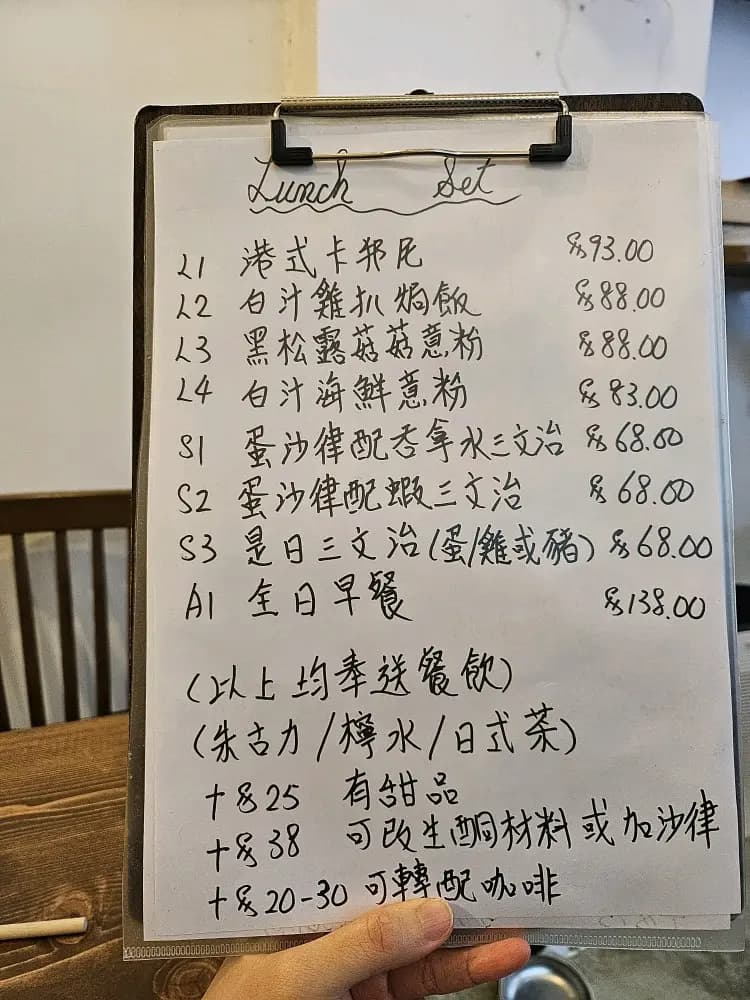 Lunch Set
L1 港式卡邦尼 $93.00
L2 白汁雞扒焗飯 $88.00
L3 黑松露菇菇意粉 $88.00
L4 白汁海鮮意粉 $83.00
S1 蛋沙律配吞拿水三文治 $68.00
S2 蛋沙律配蝦三文治 $68.00
S3 是日三文治(蛋/雞或豬) $68.00
A1 全日早餐 $138.00
(以上均奉送餐飲)
(朱古力/檸水/日式茶)
+$25 有甜品
+$38 可改生酮材料或加沙律
+$20-30 可轉配咖啡